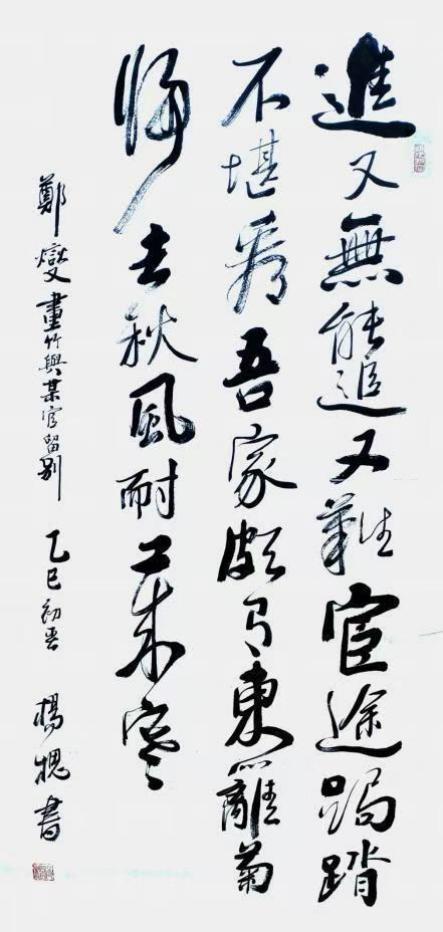 進又無能退又難宦途跼蹐
不堪看吾家頗有東籬菊
歸去秋風耐歲寒
鄭燮畫竹與某官留別 乙巳初春 楊槐書